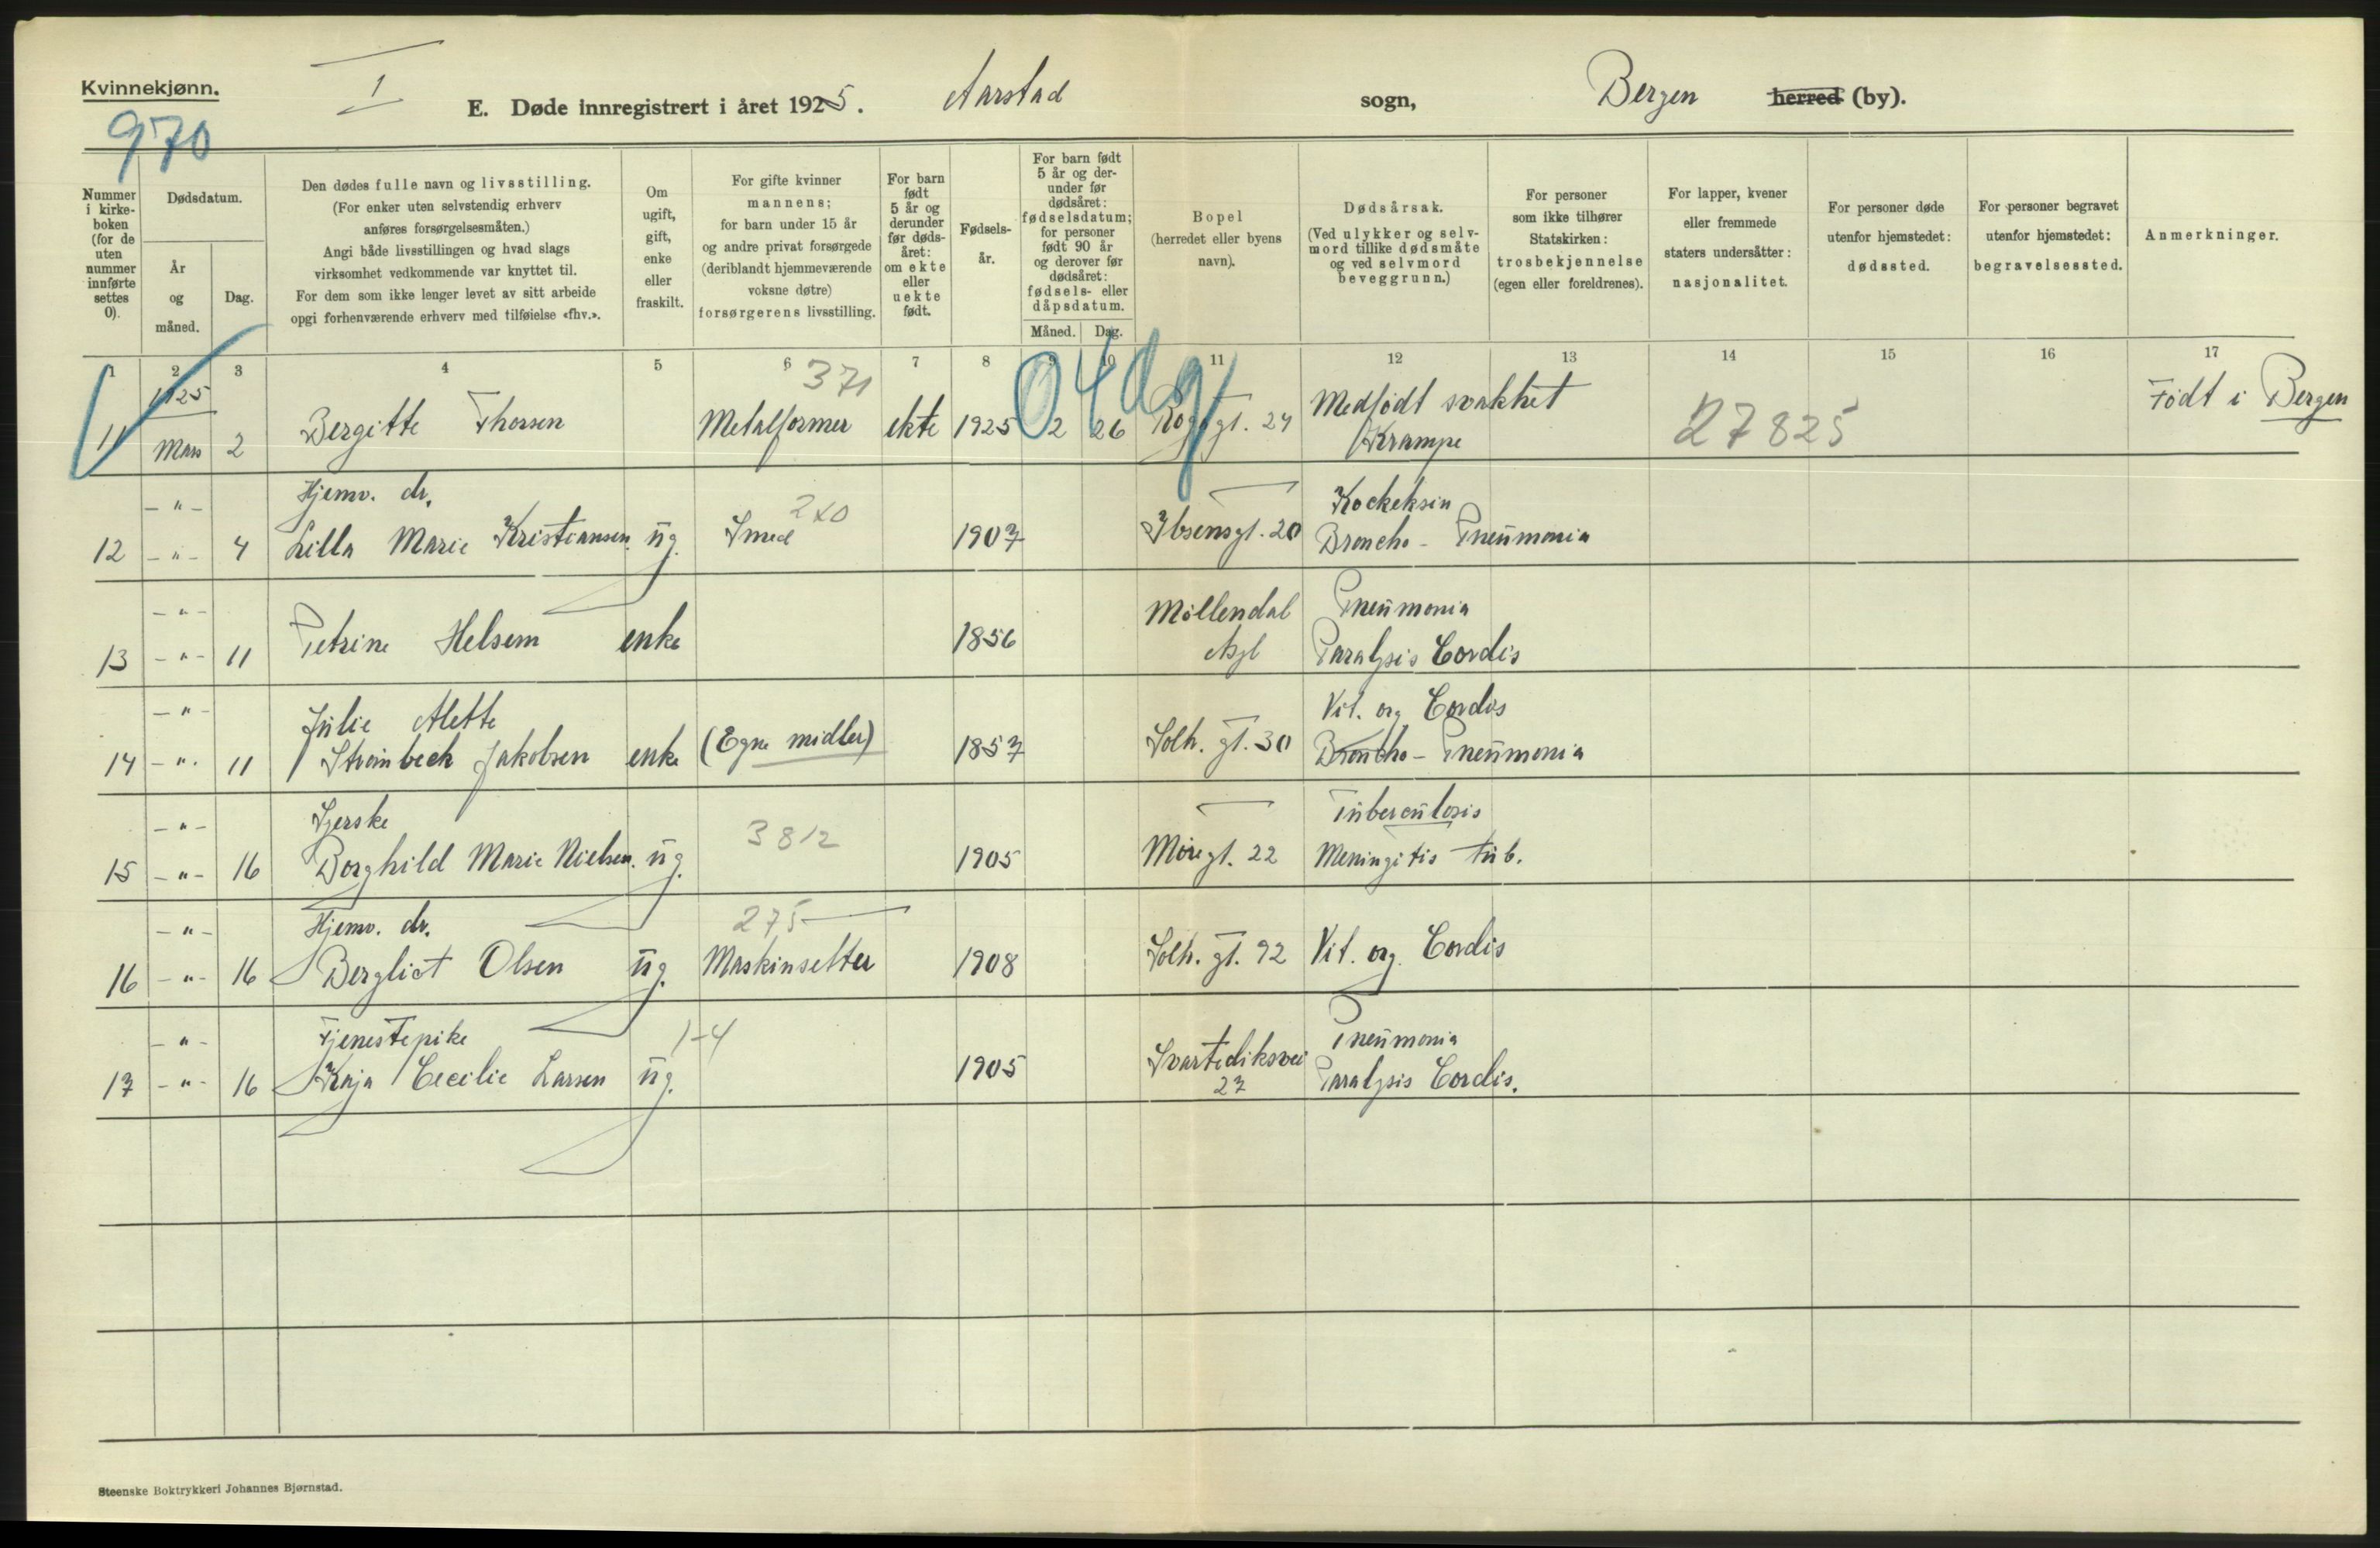 Kvinnekjønn.
I
E. Døde innregistrert i året 1925. Aarstad sogn, Bergen herred (by).
970
Nummer i kirke-boken (for de uten nummer innførte settes 0).
Dødsdatum.
År og måned.
Dag.
Den dødes fulle navn og livsstilling.
(For enker uten selvstendig erhverv
anføres forsørgelsesmåten.)
Angi både livsstillingen og hvad slags
virksomhet vedkommende var knyttet til.
For dem som ikke lenger levet av sitt arbeide
opgi forhenværende erhverv med tilføielse «fhv.».
Om ugift, gift, enke eller fraskilt.
For gifte kvinner
mannens;
for barn under 15 år
og andre privat forsørgede
(deriblandt hjemmeværende
voksne døtre)
forsørgerens livsstilling.
For barn født 5 år og derunder før døds-året: om ekte eller uekte født.
Fødsels-år.
For barn født 5 år og der-under før dødsåret: fødselsdatum; for personer født 90 år og derover før dødsåret: fødsels- eller dåpsdatum.
Måned. Dag.
Bopel
(herredet eller byens
navn).
Dødsårsak.
(Ved ulykker og selv-
mord tillike dødsmåte
og ved selvmord
beveggrunn.)
For personer
som ikke tilhører
Statskirken:
trosbekjennelse
(egen eller foreldrenes).
For lapper, kvener
eller fremmede
staters undersåtter:
nasjonalitet.
For personer døde
utenfor hjemstedet:
dødssted.
For personer begravet
utenfor hjemstedet:
begravelsessted.
Anmerkninger.
1 2 3 4 5 6 7 8 9 10 11 12 13 14 15 16 17
1925 371 04dg Medfødt svakhet Født i Bergen
11 Mars 2 Bergitte Thorsen Metalformer ekte 1925 2 26 gt. 24 Krampe 27825
- " - Hjemv. dr. Kockeksin
12 - " - 4 Lilla Marie Kristiansen ug. Smed 1907 Ibsensgt. 20 Broncho - Pneumonia
- " - Møllendal Pneumonia
13 - " - 11 Petrine Helsem enke 1856 Asyl Paralysis Cordis
- " - Julie Alette Vit. org Cordis
14 - " - 11 Strømbeck Jakobsen enke (Egne midler) 1857 Solh. gt. 30 Broncho - Pneumonia
- " - Syerske 3812 Tuberculosis
15 - " - 16 Borghild Marie Nielsen. ug. 1905 Møregt. 22 Meningitis tub.
- " - Hjemv. dr. 275
16 - " - 16 Bergliot Olsen ug. Maskinsetter 1908 Solh. gt. 92 Vit. org. Cordis
- " - Tjenestepike 1-4 Pneumonia
17 - " - 16 Kaja Cecilie Larsen ug. 1905 Svartediksvei 27 Paralysis Cordis.
Steenske Boktrykkeri Johannes Bjørnstad.